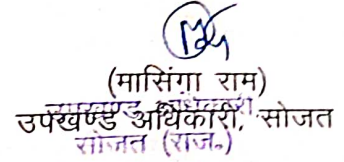 (मासिंगा राम)
उपखण्ड अधिकारी, सोजत
उपखण्ड अधिकारी
सोजत (राज.)